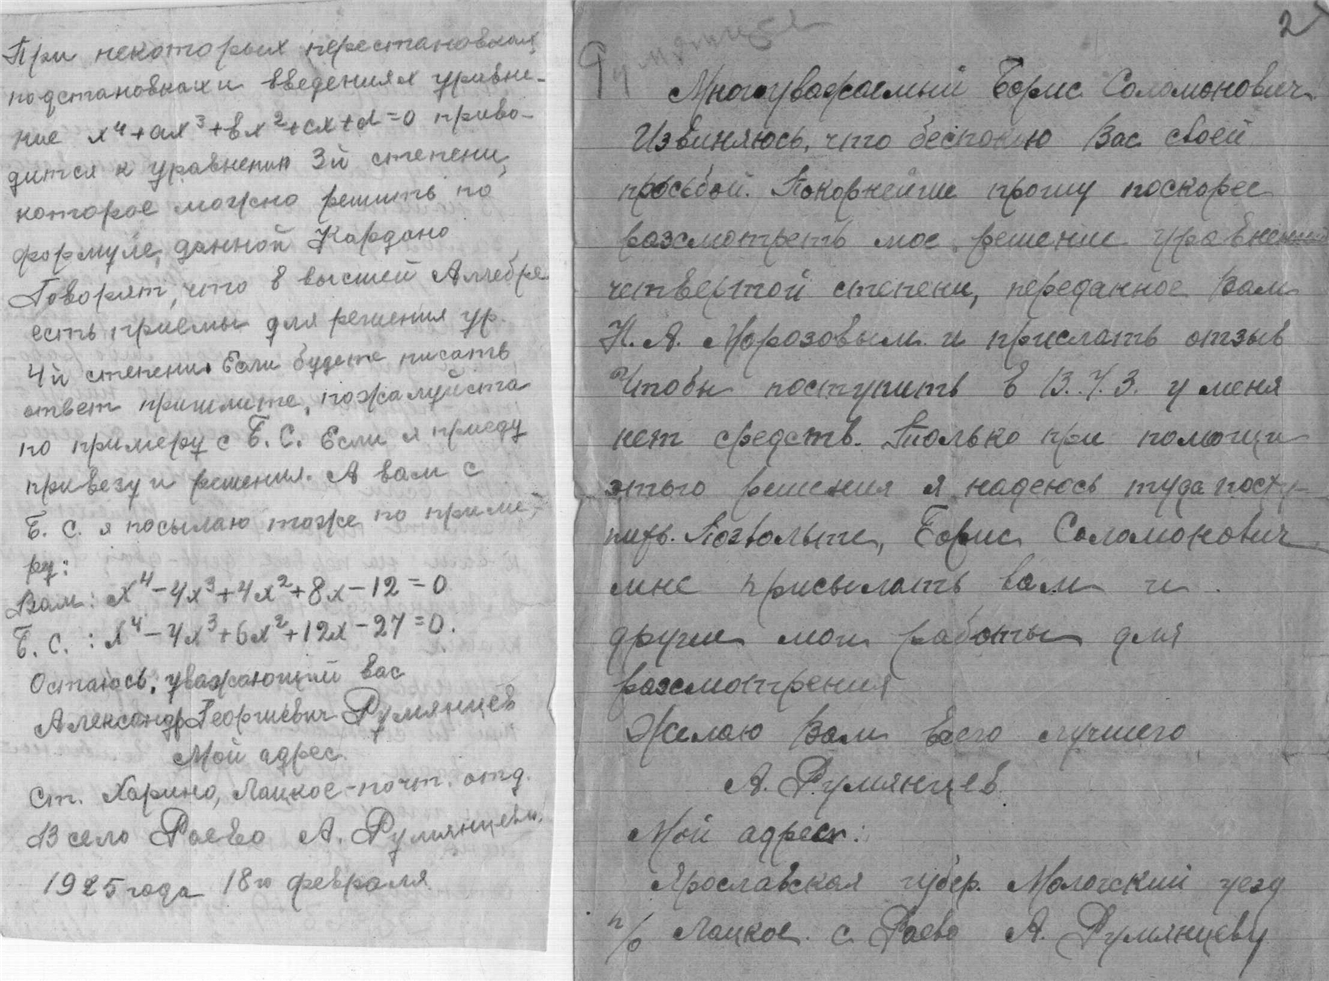 При некоторых перестановках,
подстановках и введениях уравне-
ние x⁴+ax³+bx²+cx+d=0 приво-
дится к уравнению 3й степени,
которое можно решить по
формуле, данной Кардано
Говорят, что в высшей Алгебре
есть приемы для решения ур.
4й степени. Если будете писать
ответ пришлите, пожалуйста
по примеру с Б. С. Если я приеду
привезу и решения. А вам с
Б. С. я посылаю тоже по приме-
ру:
Вам: x⁴-4x³+4x²+8x-12=0
Б. С.: x⁴-4x³+6x²+12x-27=0.
Остаюсь, уважающий вас
Александр Георгиевич Румянцев
Мой адрес
Ст. Харино, Лацкое-почт. отд.
В село Раево А. Румянцеву.
1925 года 18го февраля
2
Румянцев
Многоуважаемый Борис Соломонович
Извиняюсь, что беспокою Вас своей
просьбой. Покорнейше прошу поскорее
разсмотреть мое решение уравнений
четвертой степени, переданное Вам
Н. А. Морозовым и прислать отзыв
Чтобы поступить в В.У.З. у меня
нет средств. Только при помощи
этого решения я надеюсь туда посту-
пить. Позвольте, Борис Соломонович
мне присылать вам и
другие мои работы для
разсмотрения
Желаю Вам всего лучшего
А. Румянцев
Мой адрес:
Ярославская губер. Мологский уезд
п/о Лацкое с Раево А. Румянцеву